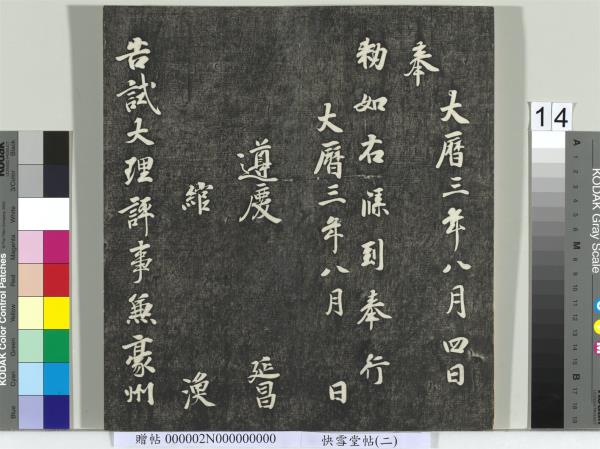 大曆三年八月四日
奉
勑如右牒到奉行
大曆三年八月 日
遵慶 延昌
綰 渙
告試大理評事兼豪州
14
KODAK Gray Scale
A 1 2 3 4 5 6 M 8 9 10 11 12 13 14 15 B 17 18 19
KODAK Color Control Patches
Blue Cyan Green Yellow Red Magenta White 3/Color Black
贈帖 000002N000000000 快雪堂帖(二)